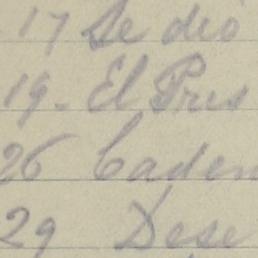 17 Se dió
19. El Pres
26 Caden
29 Dese